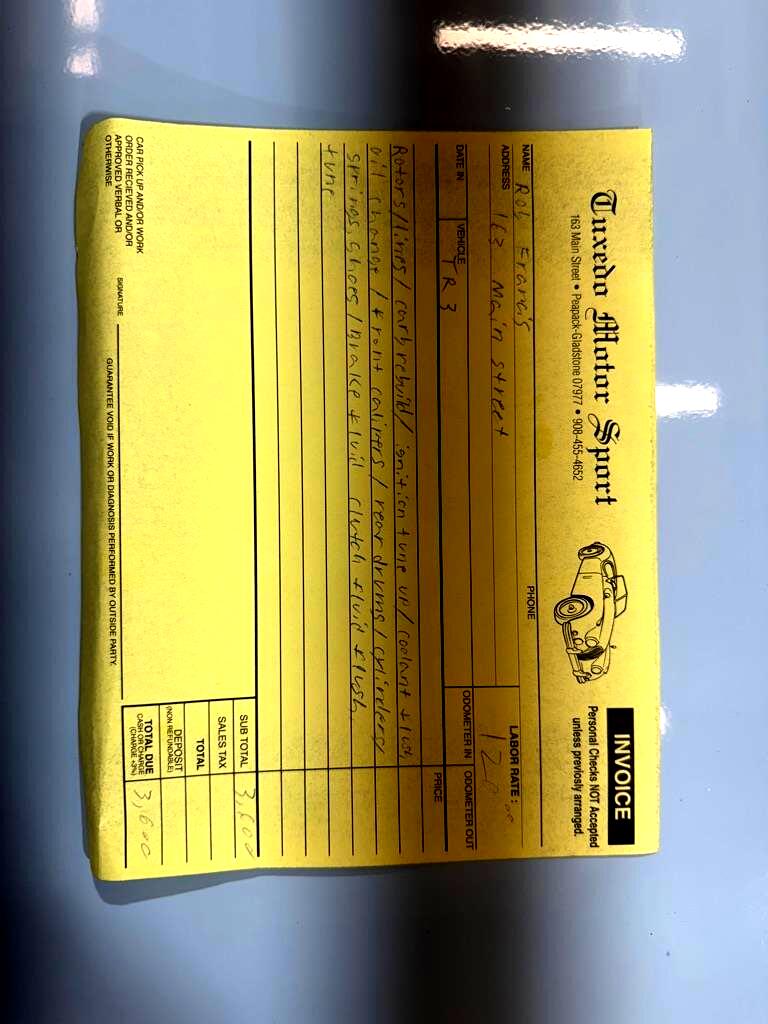 Tuxedo Motor Sport
163 Main Street • Peapack-Gladstone 07977 • 908-455-4652
INVOICE
Personal Checks NOT Accepted
unless previosly arranged.
NAME Rob Francis
PHONE
ADDRESS 163 Main street
LABOR RATE: 120.00
DATE IN
VEHICLE TR3
ODOMETER IN
ODOMETER OUT
PRICE
Rotors/lines/carb rebuild/ignition tune up/coolant flush
oil change/front calipers/rear drums/cylinders
springs, shoes/Brake fluid clutch fluid flush,
tune
SUB TOTAL 3,600
SALES TAX
TOTAL
DEPOSIT
(NON REFUNDABLE)
TOTAL DUE 3,600
CASH OR CHARGE
(CHARGE +3%)
CAR PICK UP AND/OR WORK
ORDER RECIEVED AND/OR
APPROVED VERBAL OR
OTHERWISE
SIGNATURE
GUARANTEE VOID IF WORK OR DIAGNOSIS PERFORMED BY OUTSIDE PARTY.